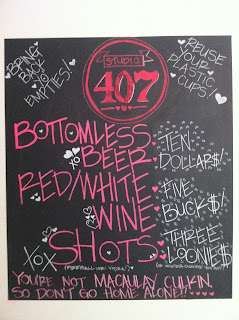 BRING BACK YOUR EMPTIES!
STUDIO
407
REUSE YOUR PLASTIC CUPS!
BOTTOMLESS
BEER
TEN
DOLLAR$!
RED/WHITE
WINE
FIVE
BUCK$!
SHOTS
THREE
LOONIE$
XOX
YOU'RE NOT MACAULAY CULKIN.
SO DON'T GO HOME ALONE!!